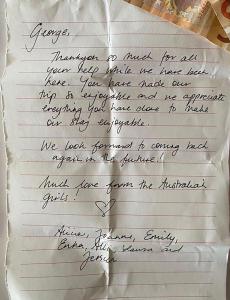 George,
Thankyou so much for all
your help while we have been
here. You have made our
trip so enjoyable and we appreciate
everything you have done to make
our stay enjoyable.
We look forward to coming back
again in the future!
Much love from the Australian
girls!
Alicia, Joanne, Emily,
Erika, Laura and
Jessica